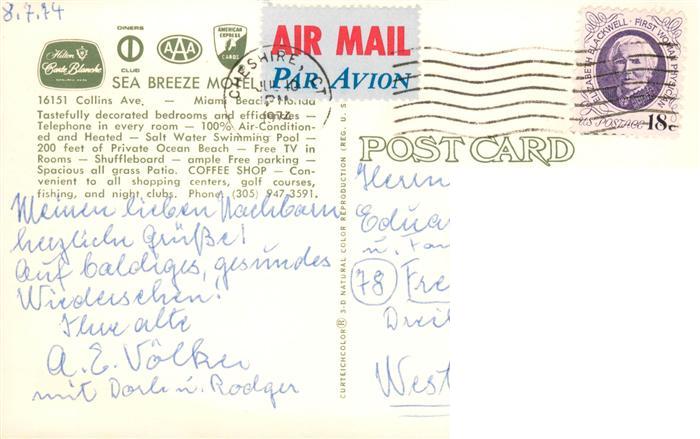 8.7.74
Hilton
Carte Blanche
DINERS
CLUB
AAA
AMERICAN
EXPRESS
CARDS
AIR MAIL
PAR AVION
CHESHIRE, CT
PM
1974
ELIZABETH BLACKWELL · FIRST WOMAN PHYSICIAN
US POSTAGE 18c
SEA BREEZE MOTEL
16151 Collins Ave. — Miami Beach, Florida
Tastefully decorated bedrooms and efficiencies —
Telephone in every room — 100% Air-Condition-
ed and Heated — Salt Water Swimming Pool —
200 feet of Private Ocean Beach — Free TV in
Rooms — Shuffleboard — ample Free parking —
Spacious all grass Patio. COFFEE SHOP — Con-
venient to all shopping centers, golf courses,
fishing, and night clubs. Phone (305) 947-3591.
Meinen lieben Nachbarn
herzliche Grüße!
Auf baldiges, gesundes
Wiedersehen!
Ihre alte
A. E. Völker
mit Dorle u. Rodger
CURTEICHCOLOR® 3-D NATURAL COLOR REPRODUCTION (REG. U.S.
POST CARD
Herrn
Edua
u. Fam
78 Fre
Drei
West